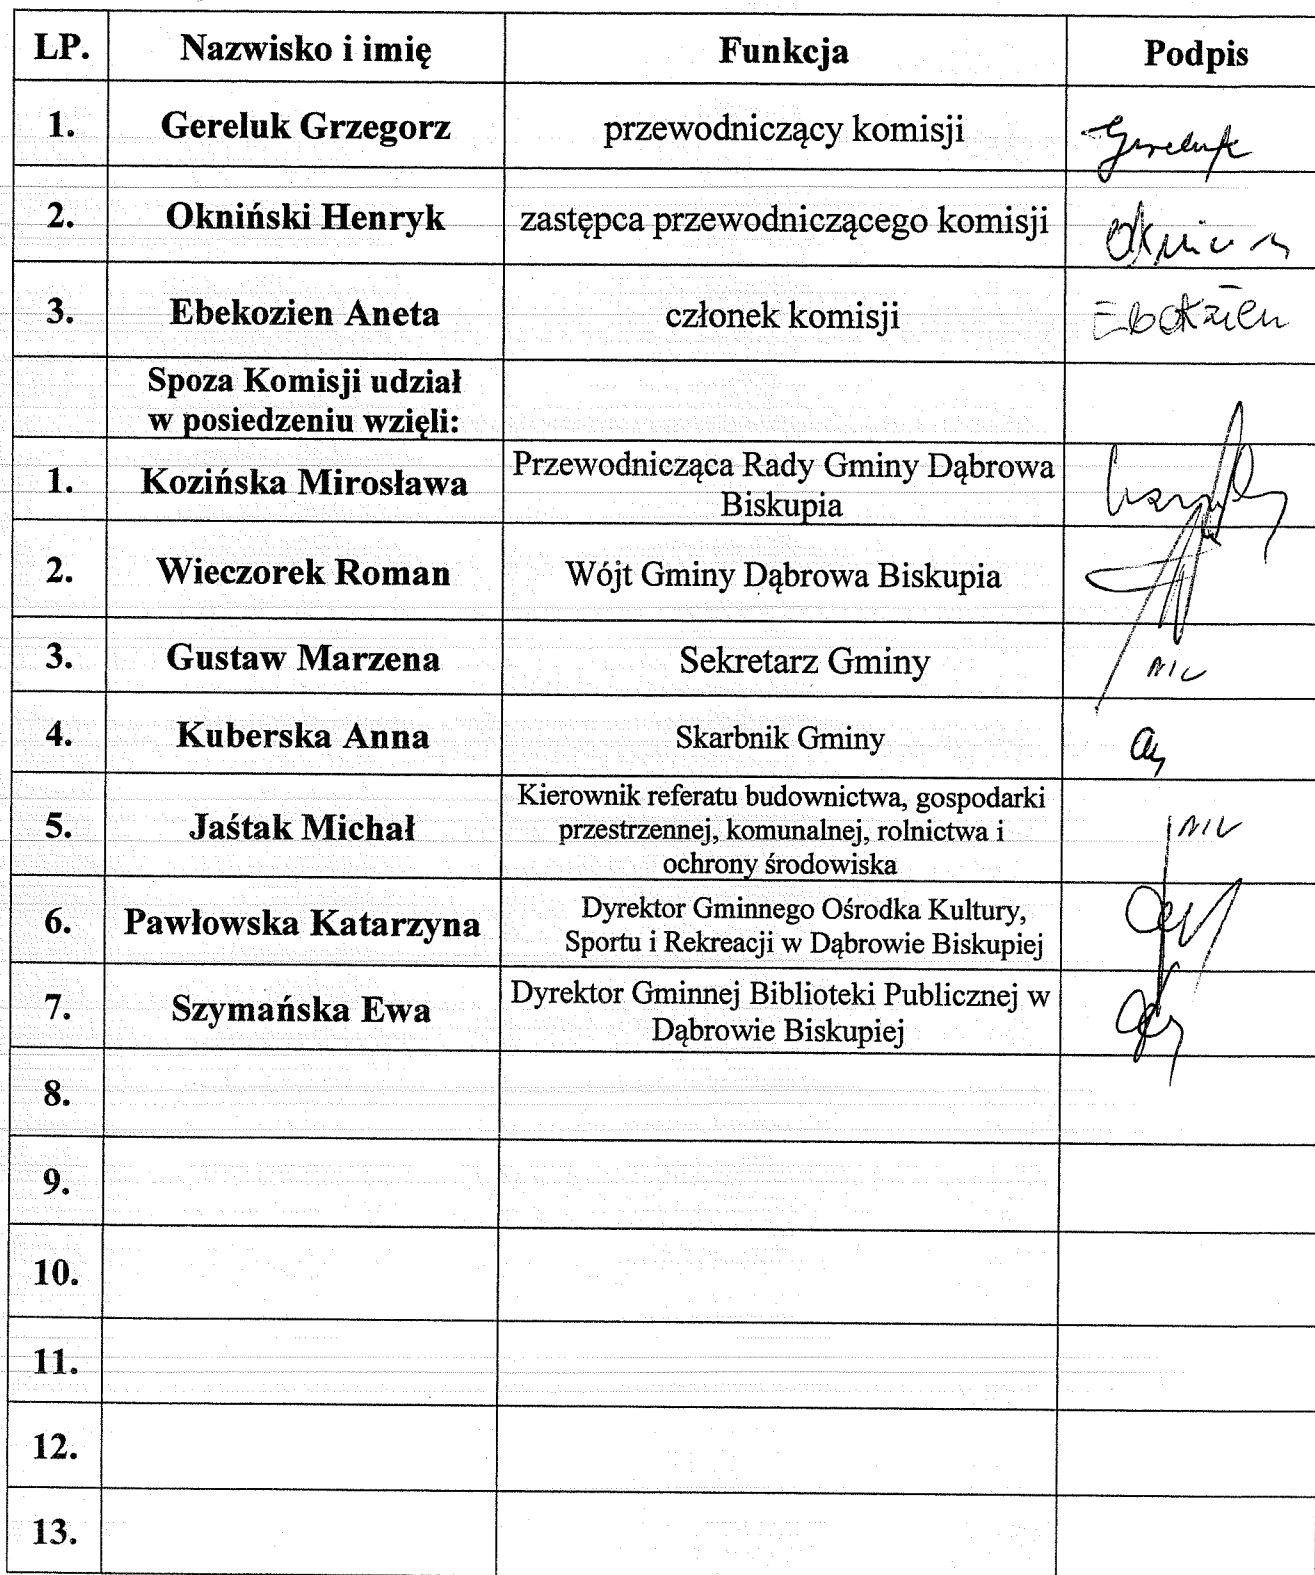 LP. Nazwisko i imię Funkcja Podpis
1. Gereluk Grzegorz przewodniczący komisji Gereluk
2. Okniński Henryk zastępca przewodniczącego komisji
3. Ebekozien Aneta członek komisji
Spoza Komisji udział
w posiedzeniu wzięli:
1. Kozińska Mirosława Przewodnicząca Rady Gminy Dąbrowa
Biskupia
2. Wieczorek Roman Wójt Gminy Dąbrowa Biskupia
3. Gustaw Marzena Sekretarz Gminy
4. Kuberska Anna Skarbnik Gminy
5. Jaśtak Michał Kierownik referatu budownictwa, gospodarki
przestrzennej, komunalnej, rolnictwa i
ochrony środowiska
6. Pawłowska Katarzyna Dyrektor Gminnego Ośrodka Kultury,
Sportu i Rekreacji w Dąbrowie Biskupiej
7. Szymańska Ewa Dyrektor Gminnej Biblioteki Publicznej w
Dąbrowie Biskupiej
8.
9.
10.
11.
12.
13.